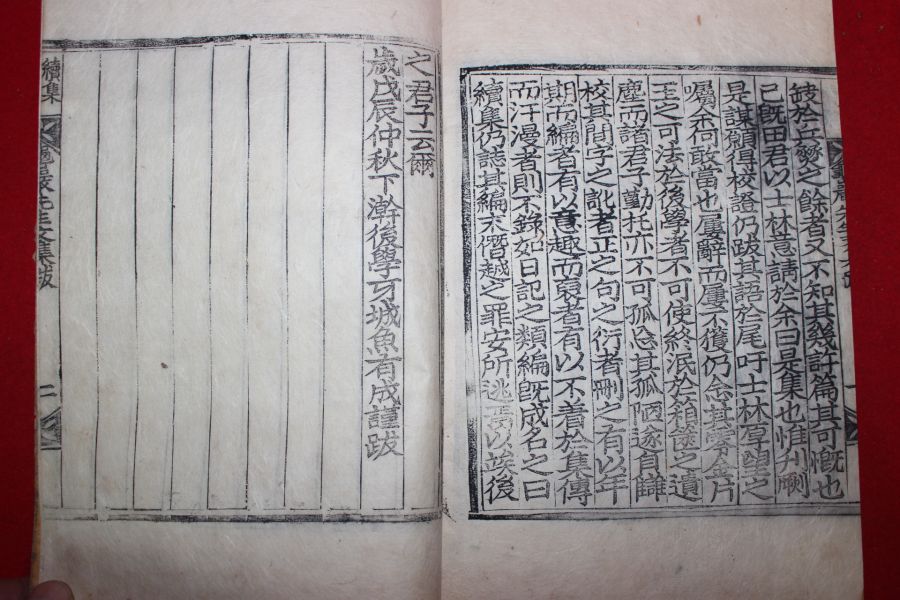 蚊於兵燹之餘者又不知其幾許篇其可慨也
已旣田君以士林意請於余曰是集也惟刋劂
是謀願俱校證仍跋其語於尾吁士林厚望之
囑余何敢當也屢辭而屢不獲仍念其零金片
玉之可法於後學者不可使終泯於箱篋之遺
塵而諸君子勤托亦不可孤忘其孤陋遂自讎
校其間子之訛者正之句之衍者刪之有以年
期而編者有以意趣而裒者有以不着於集傳
而汗漫者則不錄如日記之類編旣成名之曰
續集仍誌其編末僭越之罪安所逃焉以竢後
之君子云爾
歲戊辰仲秋下澣後學牙城魚有成謹跋
續集
先生文集跋
二